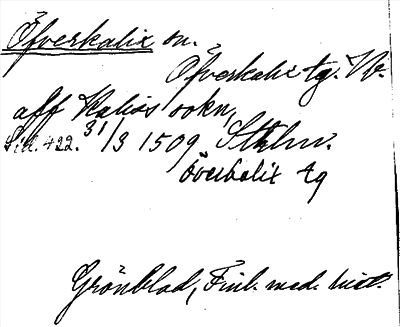 Öfverkalix sn.
Öfverkalix tg. Nb.
aff Kaliss sokn,
Sid. 422. 31/3 1509 Sthlm.
Överkalix tg
Grönblad, Finl. med. hist.